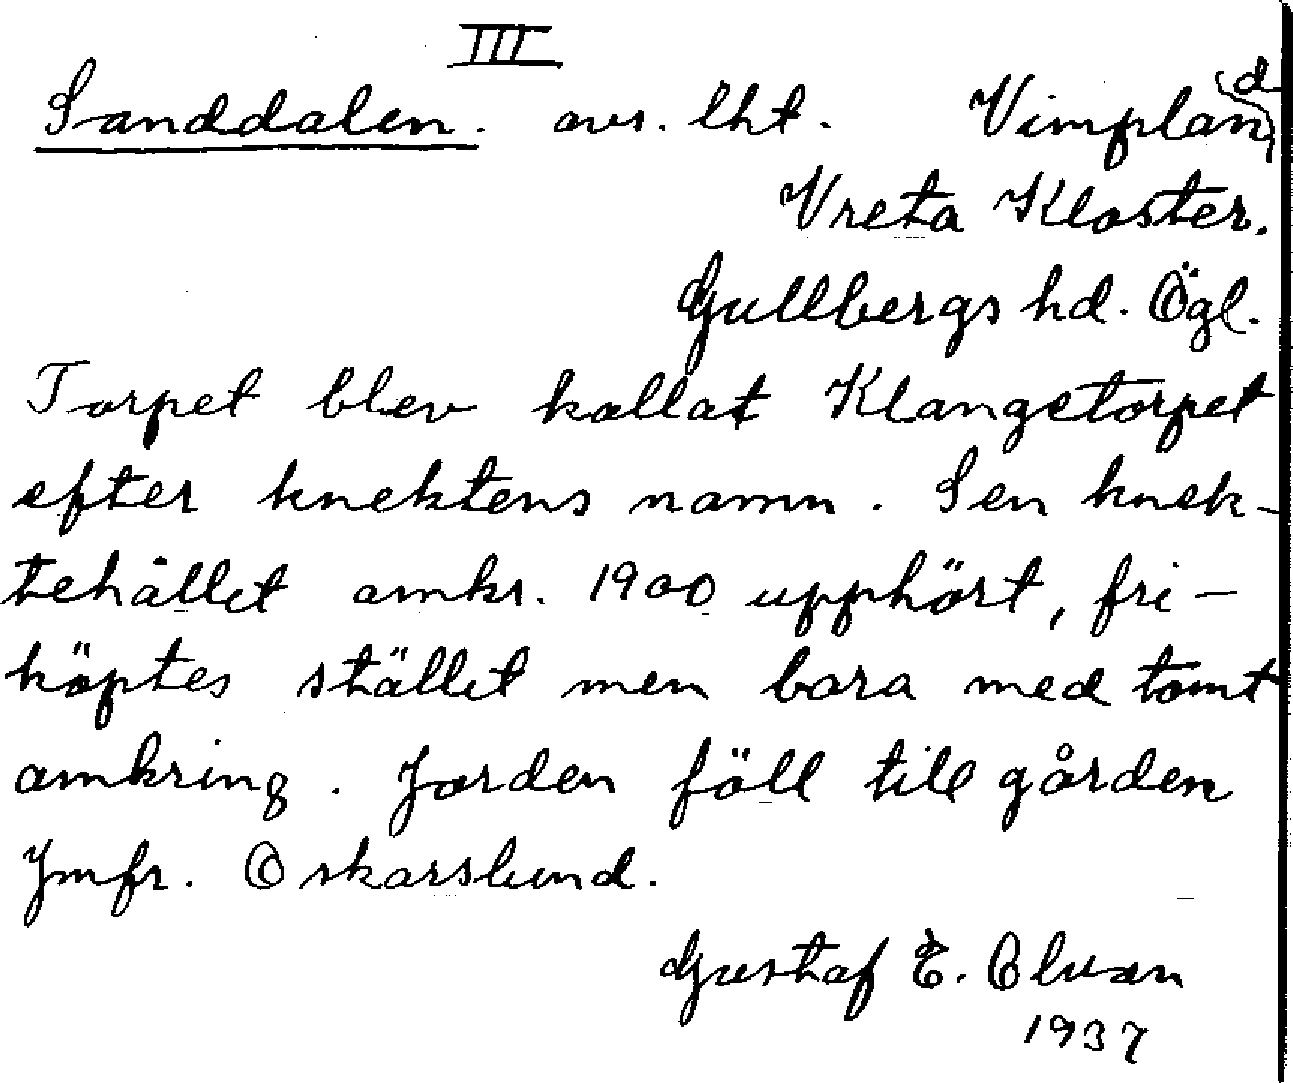 III
Sanddalen. avs. lht. Vimpland
Vreta Kloster.
Gullbergs hd. Ögl.
Torpet blev kallat Klangstorpet
efter knektens namn. Sen knek-
tehållet omkr. 1900 upphört, fri-
köptes stället men bara med tomt
omkring. Jorden föll till gården
Jmfr. Oskarslund.
Gustaf E.
1937